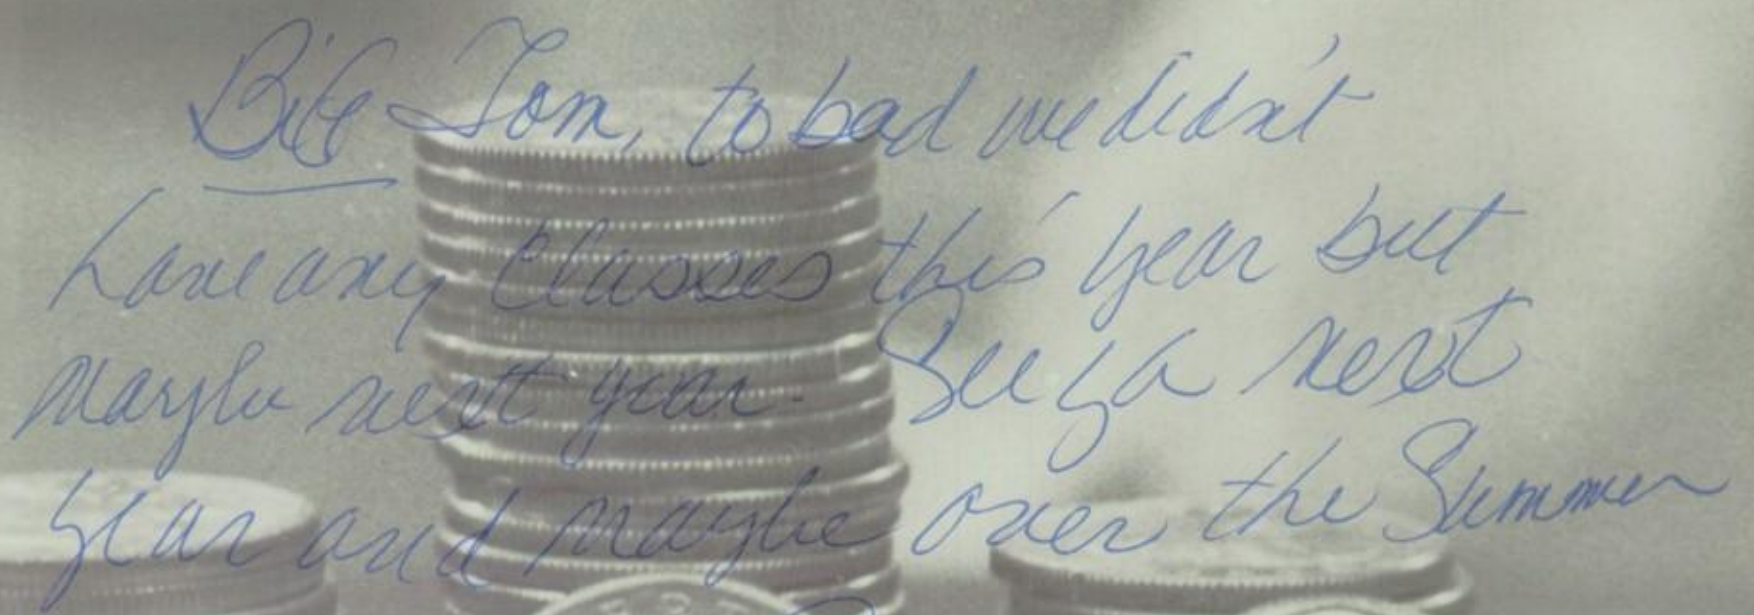 Big Tom, to bad we didn't
have any classes this year but
maybe next year. See ya next
year and maybe over the Summer